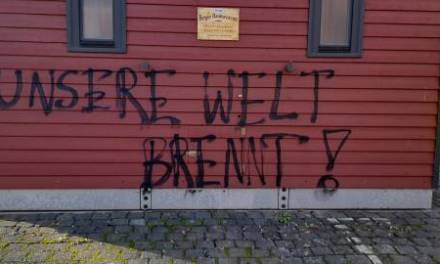 UNSERE WELT
BRENNT!